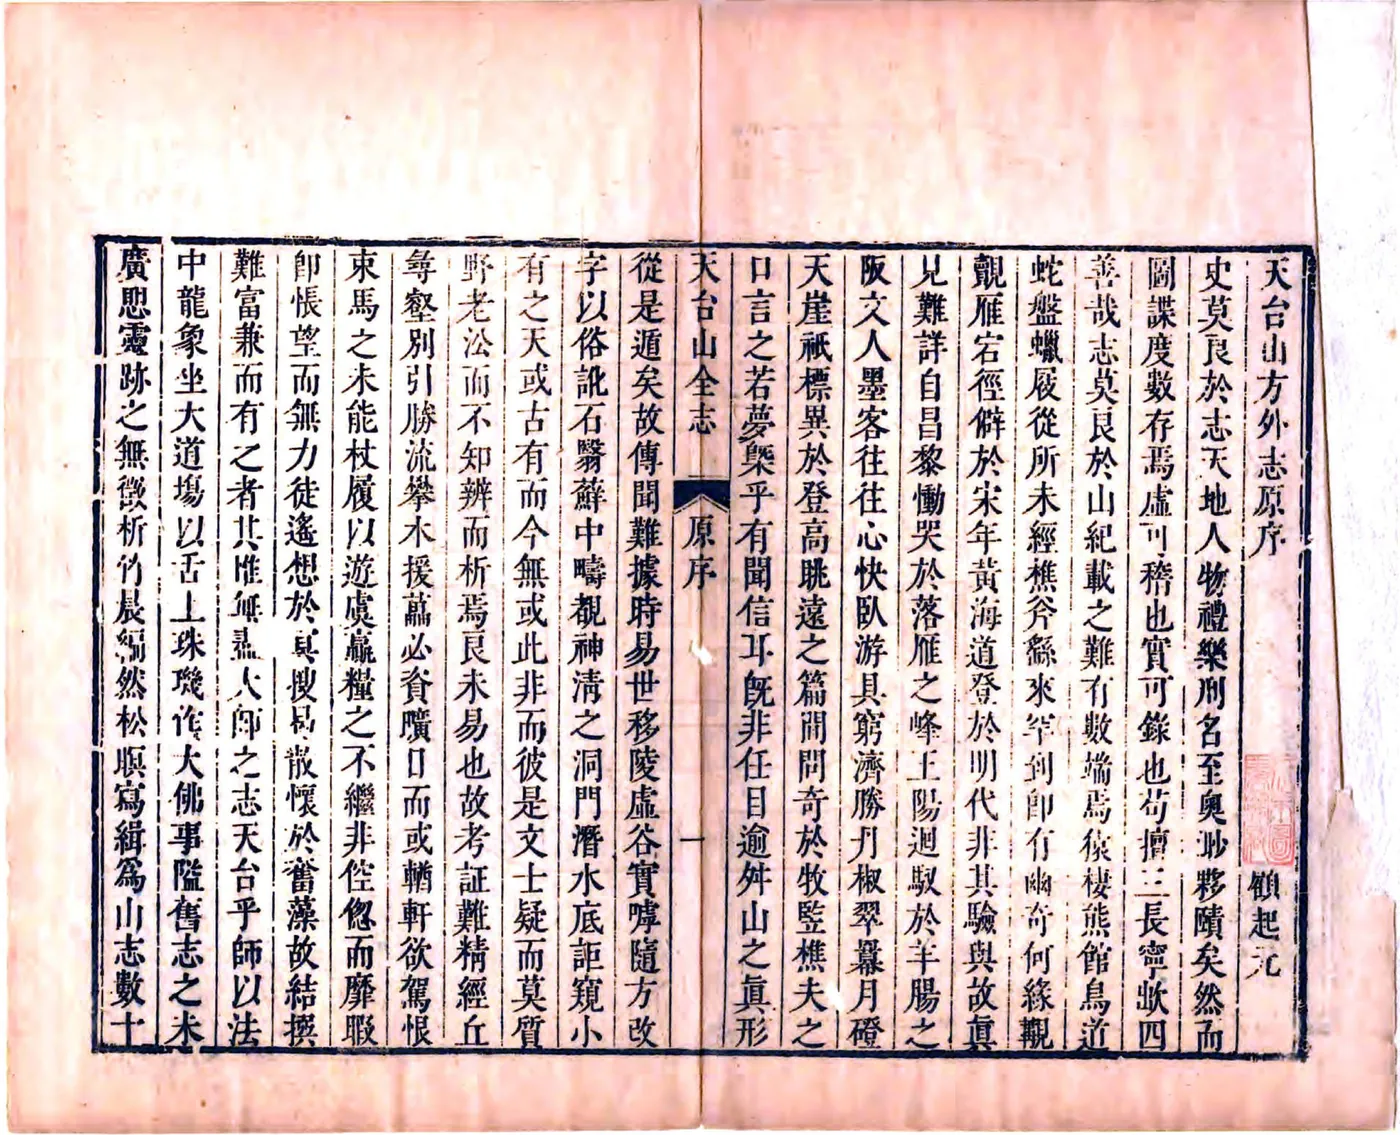 天台山方外志原序
顧起元
史莫良於志天地人物禮樂刑名至奧渺夥賾矣然而
圖諜度數存焉虛可稽也實可錄也苟擅三長寧歉四
善哉志莫良於山紀載之難有數端焉猿棲熊館鳥道
蛇盤蠟屐從所未經樵斧繇來罕到卽有幽奇何緣觀
覿雁宕徑僻於宋年黃海道登於明代非其驗與故眞
見難詳自昌黎慟哭於落雁之峰王陽迴馭於羊腸之
阪文人墨客往往心快臥游具窮濟勝丹椒翠纂月磴
天崖祇標異於登高眺遠之篇間問奇於牧監樵夫之
口言之若夢槩乎有聞信耳既非任目逾舛山之眞形
天台山全志 原序 一
從是遁矣故傳聞難據時易世移陵虛谷實嘑隨方改
字以俗訛石翳蘚中疇覩神淸之洞門潛水底詎窺小
有之天或古有而今無或此非而彼是文士疑而莫質
野老訟而不知辨而析焉良未易也故考証難精經丘
尋壑別引勝流攀木援藟必資曠日而或輶軒欲駕恨
束馬之未能杖履以遊虞羸糧之不繼非倥傯而靡暇
卽悵望而無力徒遙想於冥搜曷散懷於奮藻故結撰
難富兼而有之者其惟無盡大師之志天台乎師以法
中龍象坐大道場以舌上珠璣作大佛事隘舊志之未
廣思靈跡之無徵析竹晨編然松暝寫緝爲山志數十